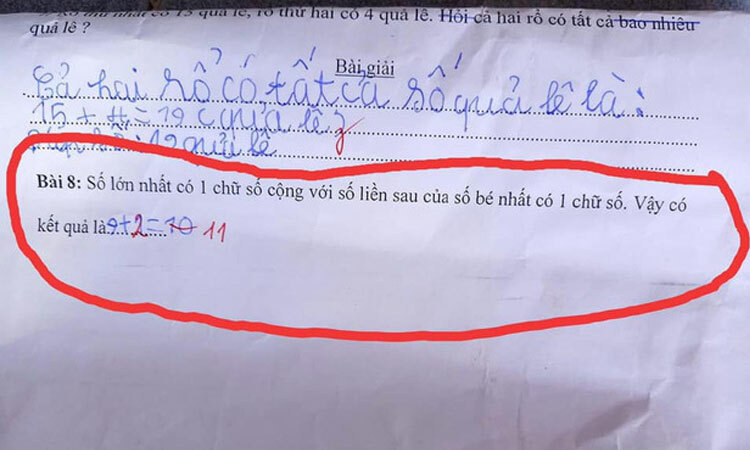 có 15 quả lê, rổ thứ hai có 4 quả lê. Hỏi cả hai rổ có tất cả bao nhiêu
quả lê ?
Bài giải
Cả hai rổ có tất cả số quả lê là:
15 + 4 = 19 (quả lê)
19 quả lê
Bài 8: Số lớn nhất có 1 chữ số cộng với số liền sau của số bé nhất có 1 chữ số. Vậy có
kết quả là 9+2=10 11